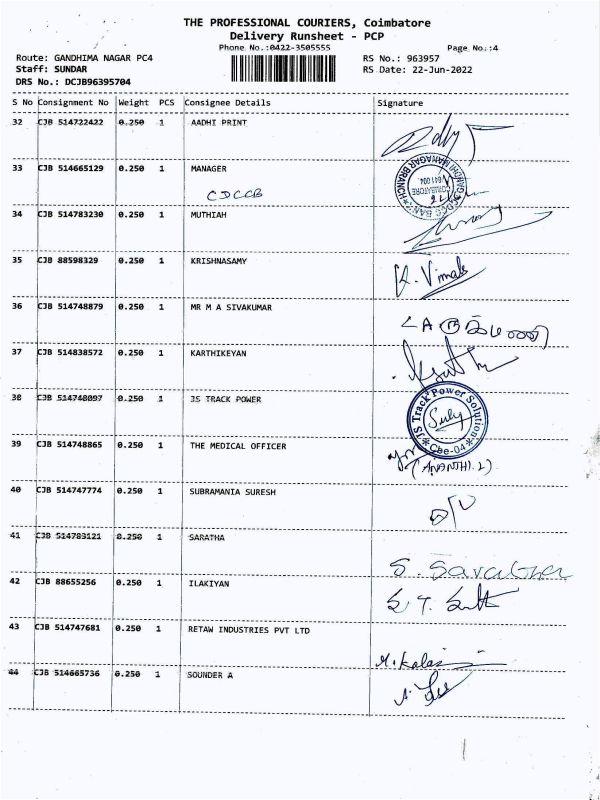 THE PROFESSIONAL COURIERS, Coimbatore
Delivery Runsheet - PCP
Phone No.:0422-3505555
Page No.:4
Route: GANDHIMA NAGAR PC4
RS No.: 963957
Staff: SUNDAR
RS Date: 22-Jun-2022
DRS No.: DCJB96395704
S No Consignment No Weight PCS Consignee Details Signature
32 CJB 514722422 0.250 1 AADHI PRINT
33 CJB 514665129 0.250 1 MANAGER
CDCCB
34 CJB 514783230 0.250 1 MUTHIAH
35 CJB 88598329 0.250 1 KRISHNASAMY
K. Vimala
36 CJB 514748879 0.250 1 MR M A SIVAKUMAR
37 CJB 514838572 0.250 1 KARTHIKEYAN
38 CJB 514748097 0.250 1 JS TRACK POWER
JS Track Power Solution
Cbe-04
39 CJB 514748865 0.250 1 THE MEDICAL OFFICER
(ANANTHI.L)
40 CJB 514747774 0.250 1 SUBRAMANIA SURESH
41 CJB 514783121 0.250 1 SARATHA
S. Saratha
42 CJB 88655256 0.250 1 ILAKIYAN
43 CJB 514747681 0.250 1 RETAW INDUSTRIES PVT LTD
M. Kalai
44 CJB 514665736 0.250 1 SOUNDER A